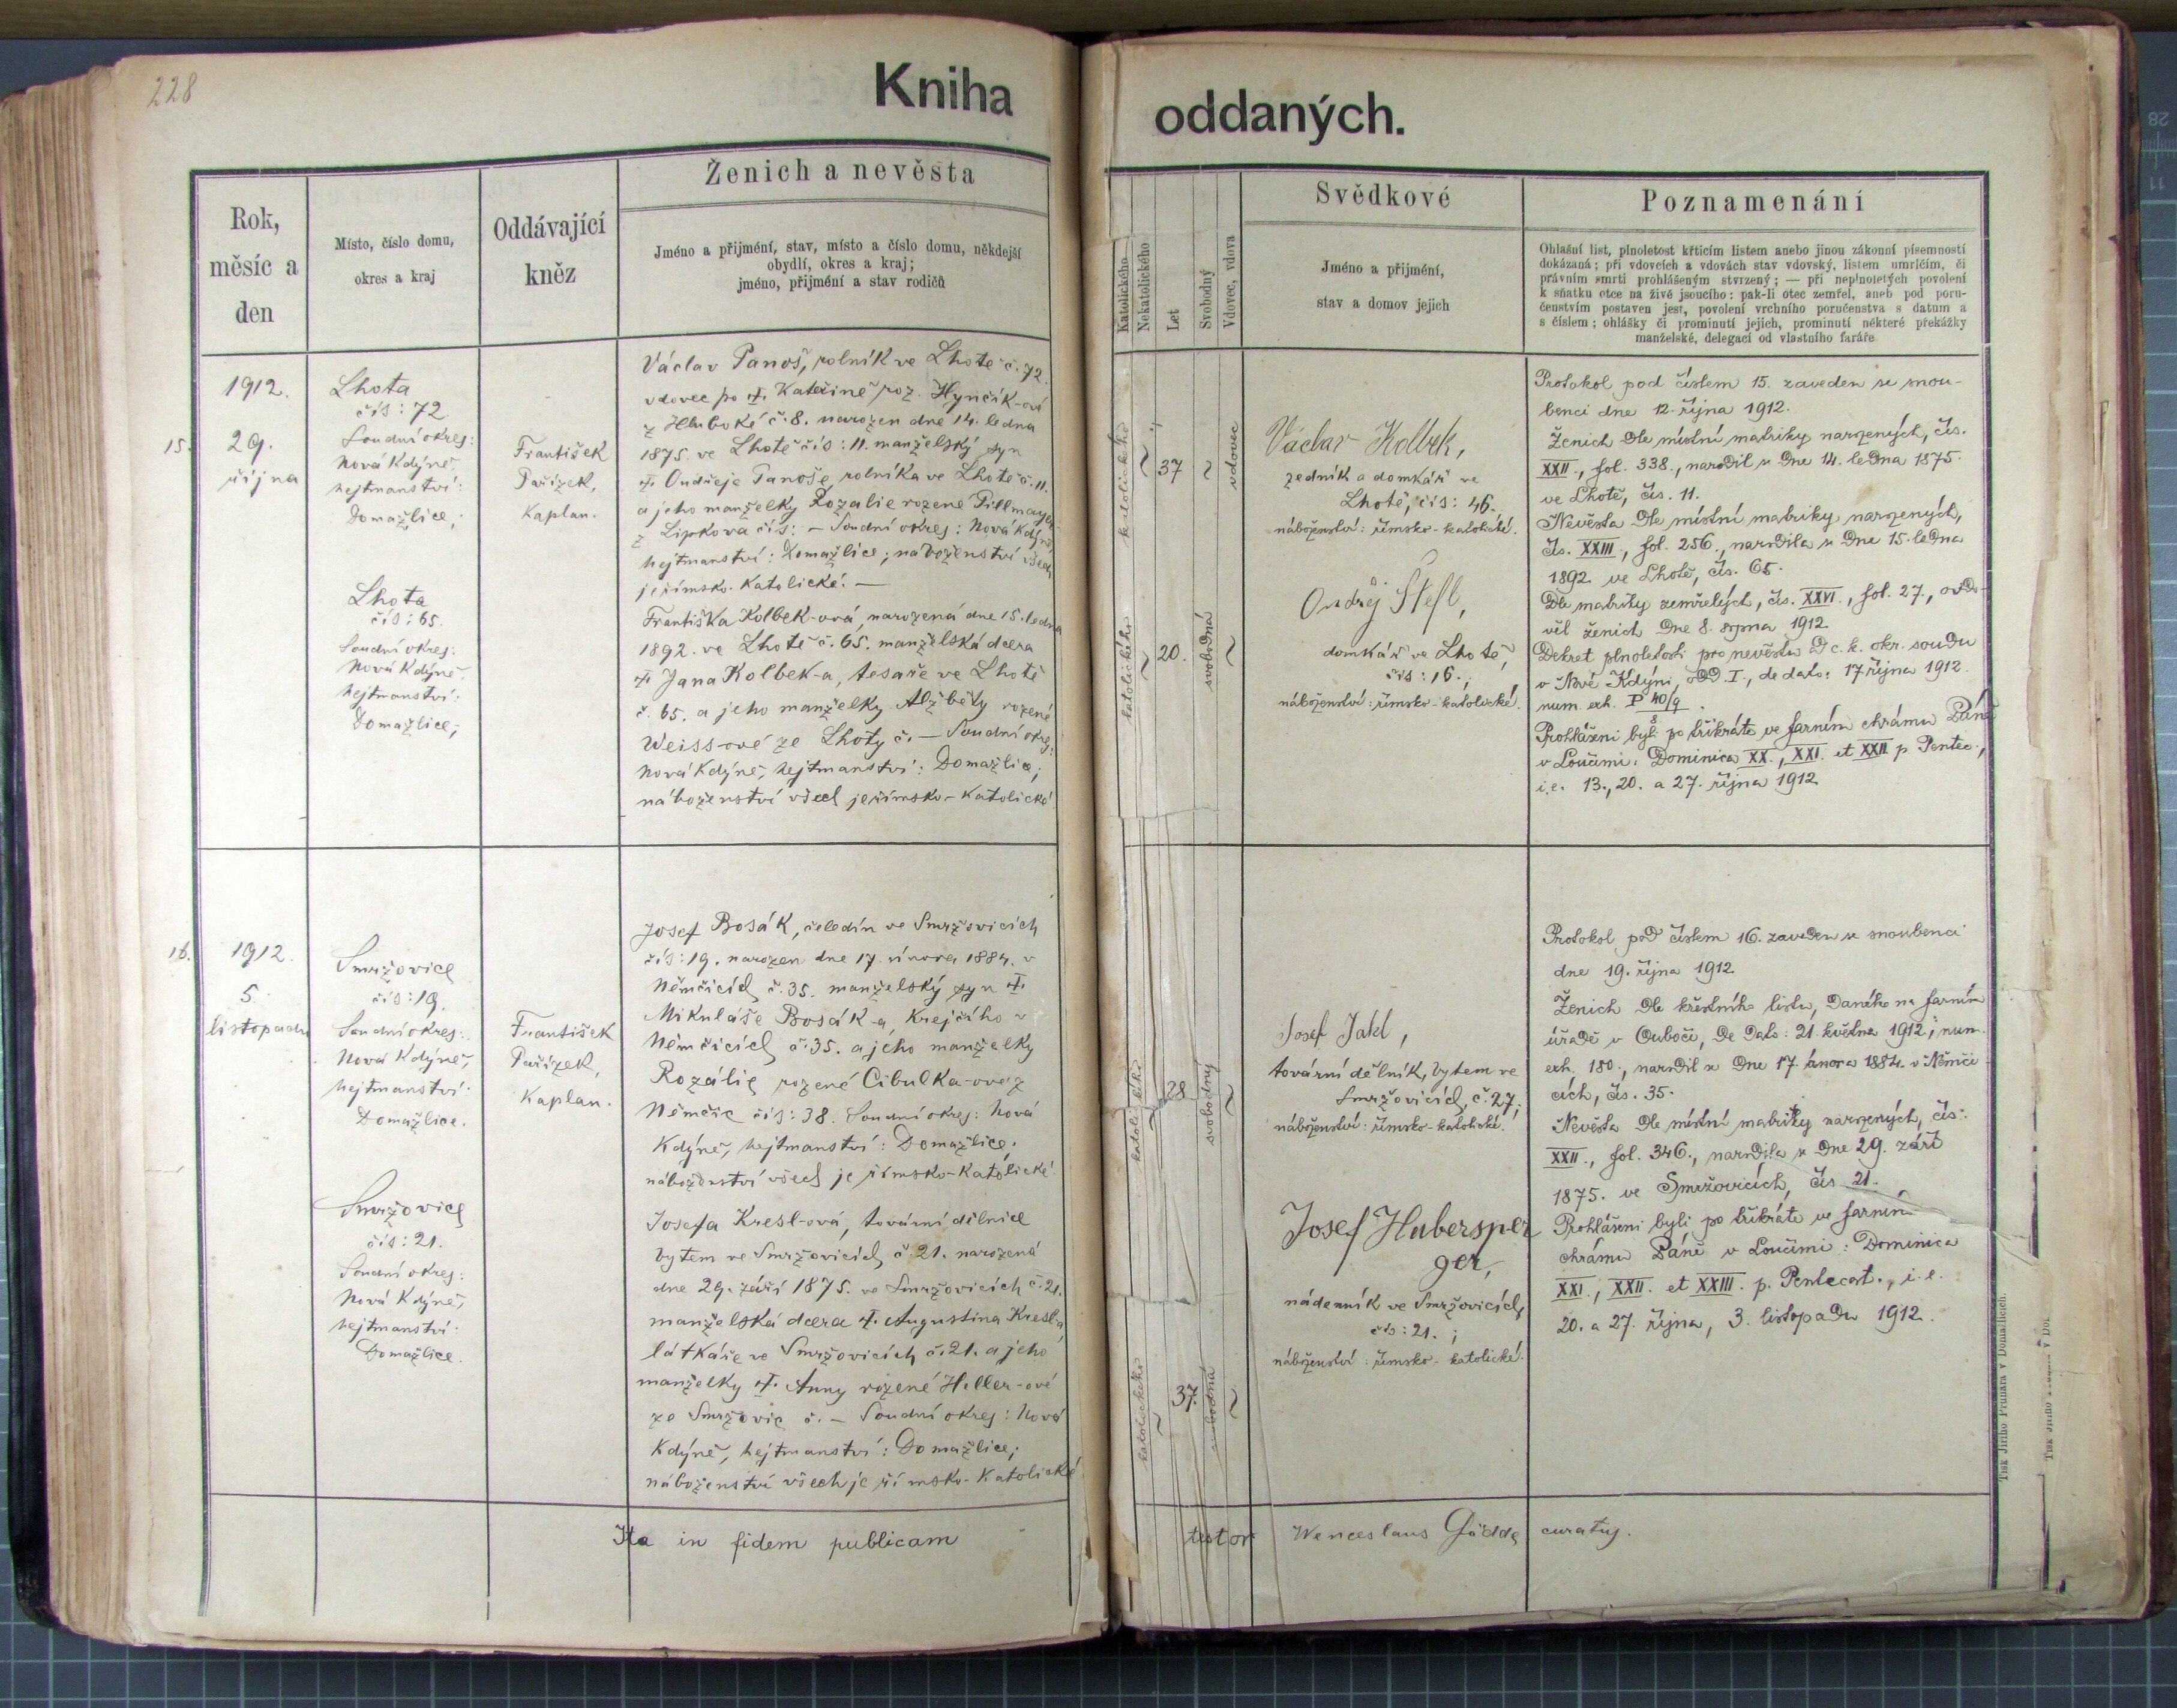 228
Kniha
oddaných.
Rok,
měsíc a
den
Místo, číslo domu,
okres a kraj
Oddávající
kněz
Ženich a nevěsta
Jméno a přijmění, stav, místo a číslo domu, někdejší
obydlí, okres a kraj;
jméno, přijmění a stav rodičů
Katolického
Nekatolického
Let
Svobodný
Vdovec, vdova
Svědkové
Jméno a přijmění,
stav a domov jejich
Poznamenání
Ohlašní list, plnoletost křticím listem anebo jinou zákonní písemností
dokázaná; při vdovcích a vdovách stav vdovský, listem umrlčím, či
právním smrti prohlášeným stvrzený; — při neplnoletých povolení
k sňatku otce na živě jsoucího: pak-li otec zemřel, aneb pod poru-
čenstvím postaven jest, povolení vrchního poručenstva s datum a
s číslem; ohlášky či prominutí jejich, prominutí některé překážky
manželské, delegací od vlastního faráře
15.
1912.
29.
října
Lhota
čís: 72
Soudní okres:
Nová Kdýně,
hejtmanství:
Domažlice;
Lhota
čís: 65.
Soudní okres:
Nová Kdýně,
hejtmanství:
Domažlice;
František
Pařízek,
Kaplan.
Václav Panoš, rolník ve Lhotě č. 72.
vdovec po †. Kateřině roz. Hynčík-ové
z Hluboké č. 8. narozen dne 14. ledna
1875. ve Lhotě čís: 11. manželský syn
†. Ondřeje Panoše, rolníka ve Lhotě č. 11.
a jeho manželky Rozalie rozené Pillmayer
z Lipkova čís: — Soudní okres: Nová Kdýně,
hejtmanství: Domažlice; náboženství všech
je římsko-katolické. —
Františka Kolbek-ová, narozená dne 15. ledna
1892. ve Lhotě č. 65. manželská dcera
†. Jana Kolbek-a, tesaře ve Lhotě
č. 65. a jeho manželky Alžběty rozené
Weiss-ové ze Lhoty č. — Soudní okres:
Nová Kdýně, hejtmanství: Domažlice;
náboženství všech je římsko-katolické
katolického
37
vdovec
katolického
20.
svobodná
Václav Kolbek,
zedník a domkář ve
Lhotě, čís: 46.
náboženství: římsko-katolické.
Ondřej Štefl,
domkář ve Lhotě,
čís: 16.;
náboženství: římsko-katolické.
Protokol pod číslem 15. zaveden se snou-
benci dne 12. října 1912.
Ženich dle místní matriky narozených, čís.
XXII., fol. 338., narodil se dne 14. ledna 1875.
ve Lhotě, čís. 11.
Nevěsta dle místní matriky narozených,
čís. XXIII., fol. 256., narodila se dne 15. ledna
1892. ve Lhotě, čís. 65.
Dle matriky zemřelých, čís. XXVI., fol. 27., ovdo-
věl ženich dne 8. srpna 1912.
Dekret plnoletosti pro nevěstu od c. k. okr. soudu
v Nové Kdýni, odd. I., de dato: 17 října 1912.
num. exh. P 40/9
8
Prohlášeni byli po třikráte ve farním chrámu Páně
v Loučimi: Dominica XX., XXI. et XXII p. Pentec.,
i. e. 13., 20. a 27. října 1912.
16.
1912.
5.
listopadu
Smržovice
čís: 19.
Soudní okres:
Nová Kdýně,
hejtmanství:
Domažlice.
Smržovice
čís: 21.
Soudní okres:
Nová Kdýně,
hejtmanství:
Domažlice.
František
Pařízek,
Kaplan.
Josef Bosák, čeledín ve Smržovicích
čís: 19. narozen dne 17. února 1884. v
Němčicích č. 35. manželský syn †.
Mikuláše Bosák-a, Krejčího v
Němčicích č. 35. a jeho manželky
Rozálie rozené Cibulka-ové z
Němčic čís: 38. Soudní okres: Nová
Kdýně, hejtmanství: Domažlice.
náboženství všech je římsko-katolické.
Josefa Kresl-ová, tovární dělnice
bytem ve Smržovicích č. 21. narozená
dne 29. září 1875. ve Smržovicích č. 21.
manželská dcera †. Augustina Kresl-a
látkáře ve Smržovicích č. 21. a jeho
manželky †. Anny rozené Heller-ové
ze Smržovic č. — Soudní okres: Nová
Kdýně, hejtmanství: Domažlice;
náboženství všech je římsko-katolické.
katolického
28
svobodný
katolického
37.
svobodná
Josef Jakl,
tovární dělník, bytem ve
Smržovicích, č. 27;
náboženství: římsko-katolické.
Josef Hubersper
ger,
nádenník ve Smržovicích,
čís: 21. ;
náboženství: římsko-katolické.
Protokol pod číslem 16. zaveden se snoubenci
dne 19. října 1912.
Ženich dle křestního listu, daného na farním
úřadě v Ouboči, de dato: 21. května 1912, num.
exh. 180., narodil se dne 17. února 1884. v Němči-
cích, čís. 35.
Nevěsta dle místní matriky narozených, čís.
XXII., fol. 346., narodila se dne 29. září
1875. ve Smržovicích, čís 21.
Prohlášeni byli po třikráte ve farním
chrámu Páně v Loučimi: Dominica
XXI., XXII. et XXIII. p. Pentecost., i. e.
20. a 27. října, 3. listopadu 1912.
Ita in fidem publicam testor Wenceslaus Gödde curatus.
Tisk Jiřího Prunara v Domažlicích.